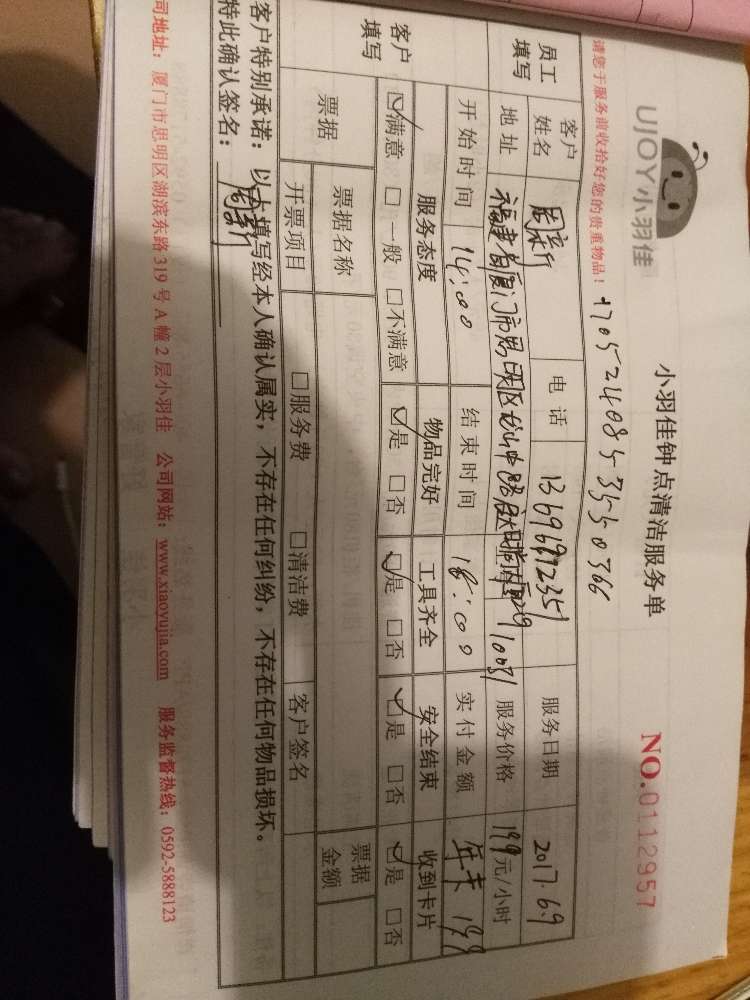 UJOY小羽佳
小羽佳钟点清洁服务单
NO.0112957
请您于服务前收拾好您的贵重物品！
员工填写
客户姓名
电话
服务日期 2017.6.9
地址 福建省厦门市思明区
服务价格 199元/小时
开始时间 14:00 结束时间 18:00 实付金额 年卡 199
客户填写
服务态度 物品完好 工具齐全 安全结束 收到卡片
☑满意 □一般 □不满意 ☑是 □否 ☑是 □否 ☑是 □否 ☑是 □否
票据
票据名称
票据金额
开票项目 □服务费 □清洁费 客户签名
客户特别承诺：以上填写经本人确认属实，不存在任何纠纷，不存在任何物品损坏。
特此确认签名：
司地址：厦门市思明区湖滨东路319号A幢2层小羽佳 公司网站：www.xiaoyujia.com 服务监督热线：0592-5888123